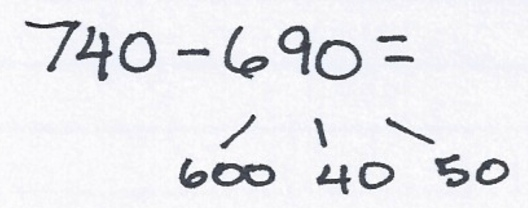 740 - 690 =
600 40 50